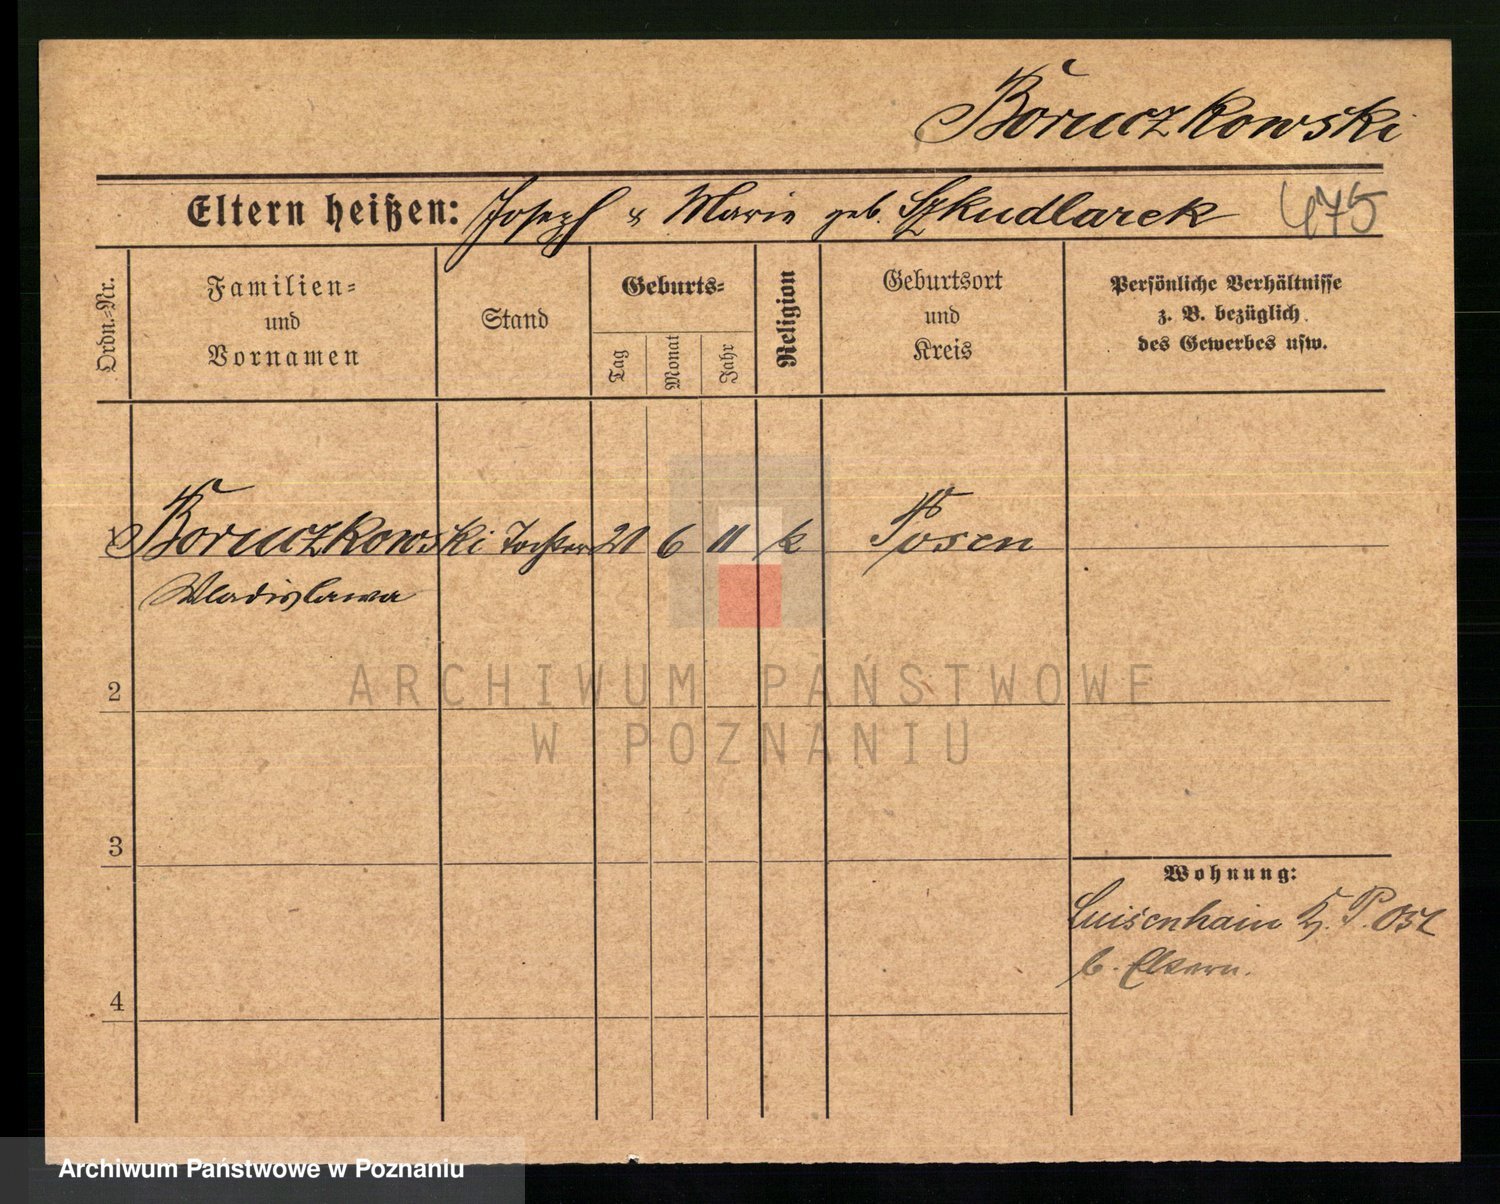 Boruczkowski
Eltern heißen: Joseph & Marie geb. Szkudlarek 475
Ordn.-Nr.
Familien-
und
Vornamen
Stand
Geburts-
Tag
Monat
Jahr
Religion
Geburtsort
und
Kreis
Persönliche Verhältnisse
z. B. bezüglich
des Gewerbes usw.
1 Boruczkowski Tochter 21 6 11 k Posen
Wladislawa
2
ARCHIWUM PAŃSTWOWE
W POZNANIU
3
Wohnung:
Luisenhain Kr. P. Ost
b. Eltern.
4
Archiwum Państwowe w Poznaniu